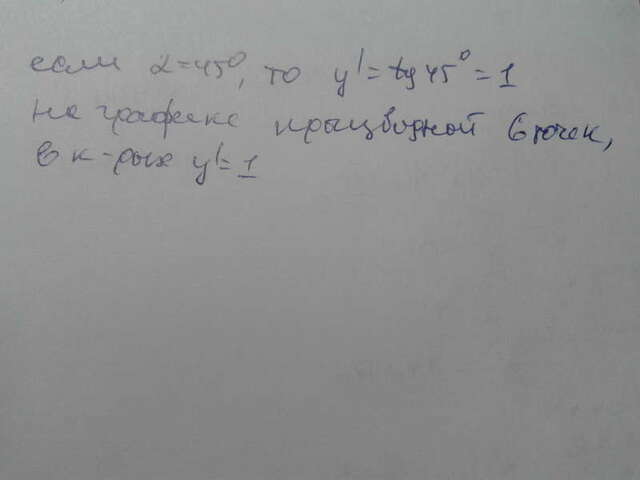 если α=45°, то y'=tg45°=1
На графике производной 6 точек,
в к-рых y'=1